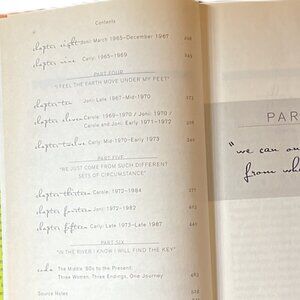 Contents
chapter eight Joni: March 1965–December 1967
chapter nine Carly: 1965–1969
PART FOUR
"I FEEL THE EARTH MOVE UNDER MY FEET"
chapter ten Joni: Late 1967–Mid-1970
chapter eleven Carole: 1969–1970 / Joni: 1970 /
Carole and Joni: Early 1971–1972
chapter twelve Carly: Mid-1970–Early 1973
PART FIVE
"WE JUST COME FROM SUCH DIFFERENT
SETS OF CIRCUMSTANCE"
chapter thirteen Carole: 1972–1984
chapter fourteen Joni: 1972–1982
chapter fifteen Carly: 1973–Late 1987
PART SIX
"IN THE RIVER I KNOW I WILL FIND THE KEY"
coda The Middle '80s to the Present:
Three Women, Three Endings, One Journey
Source Notes
PAR
"we can on
from wh